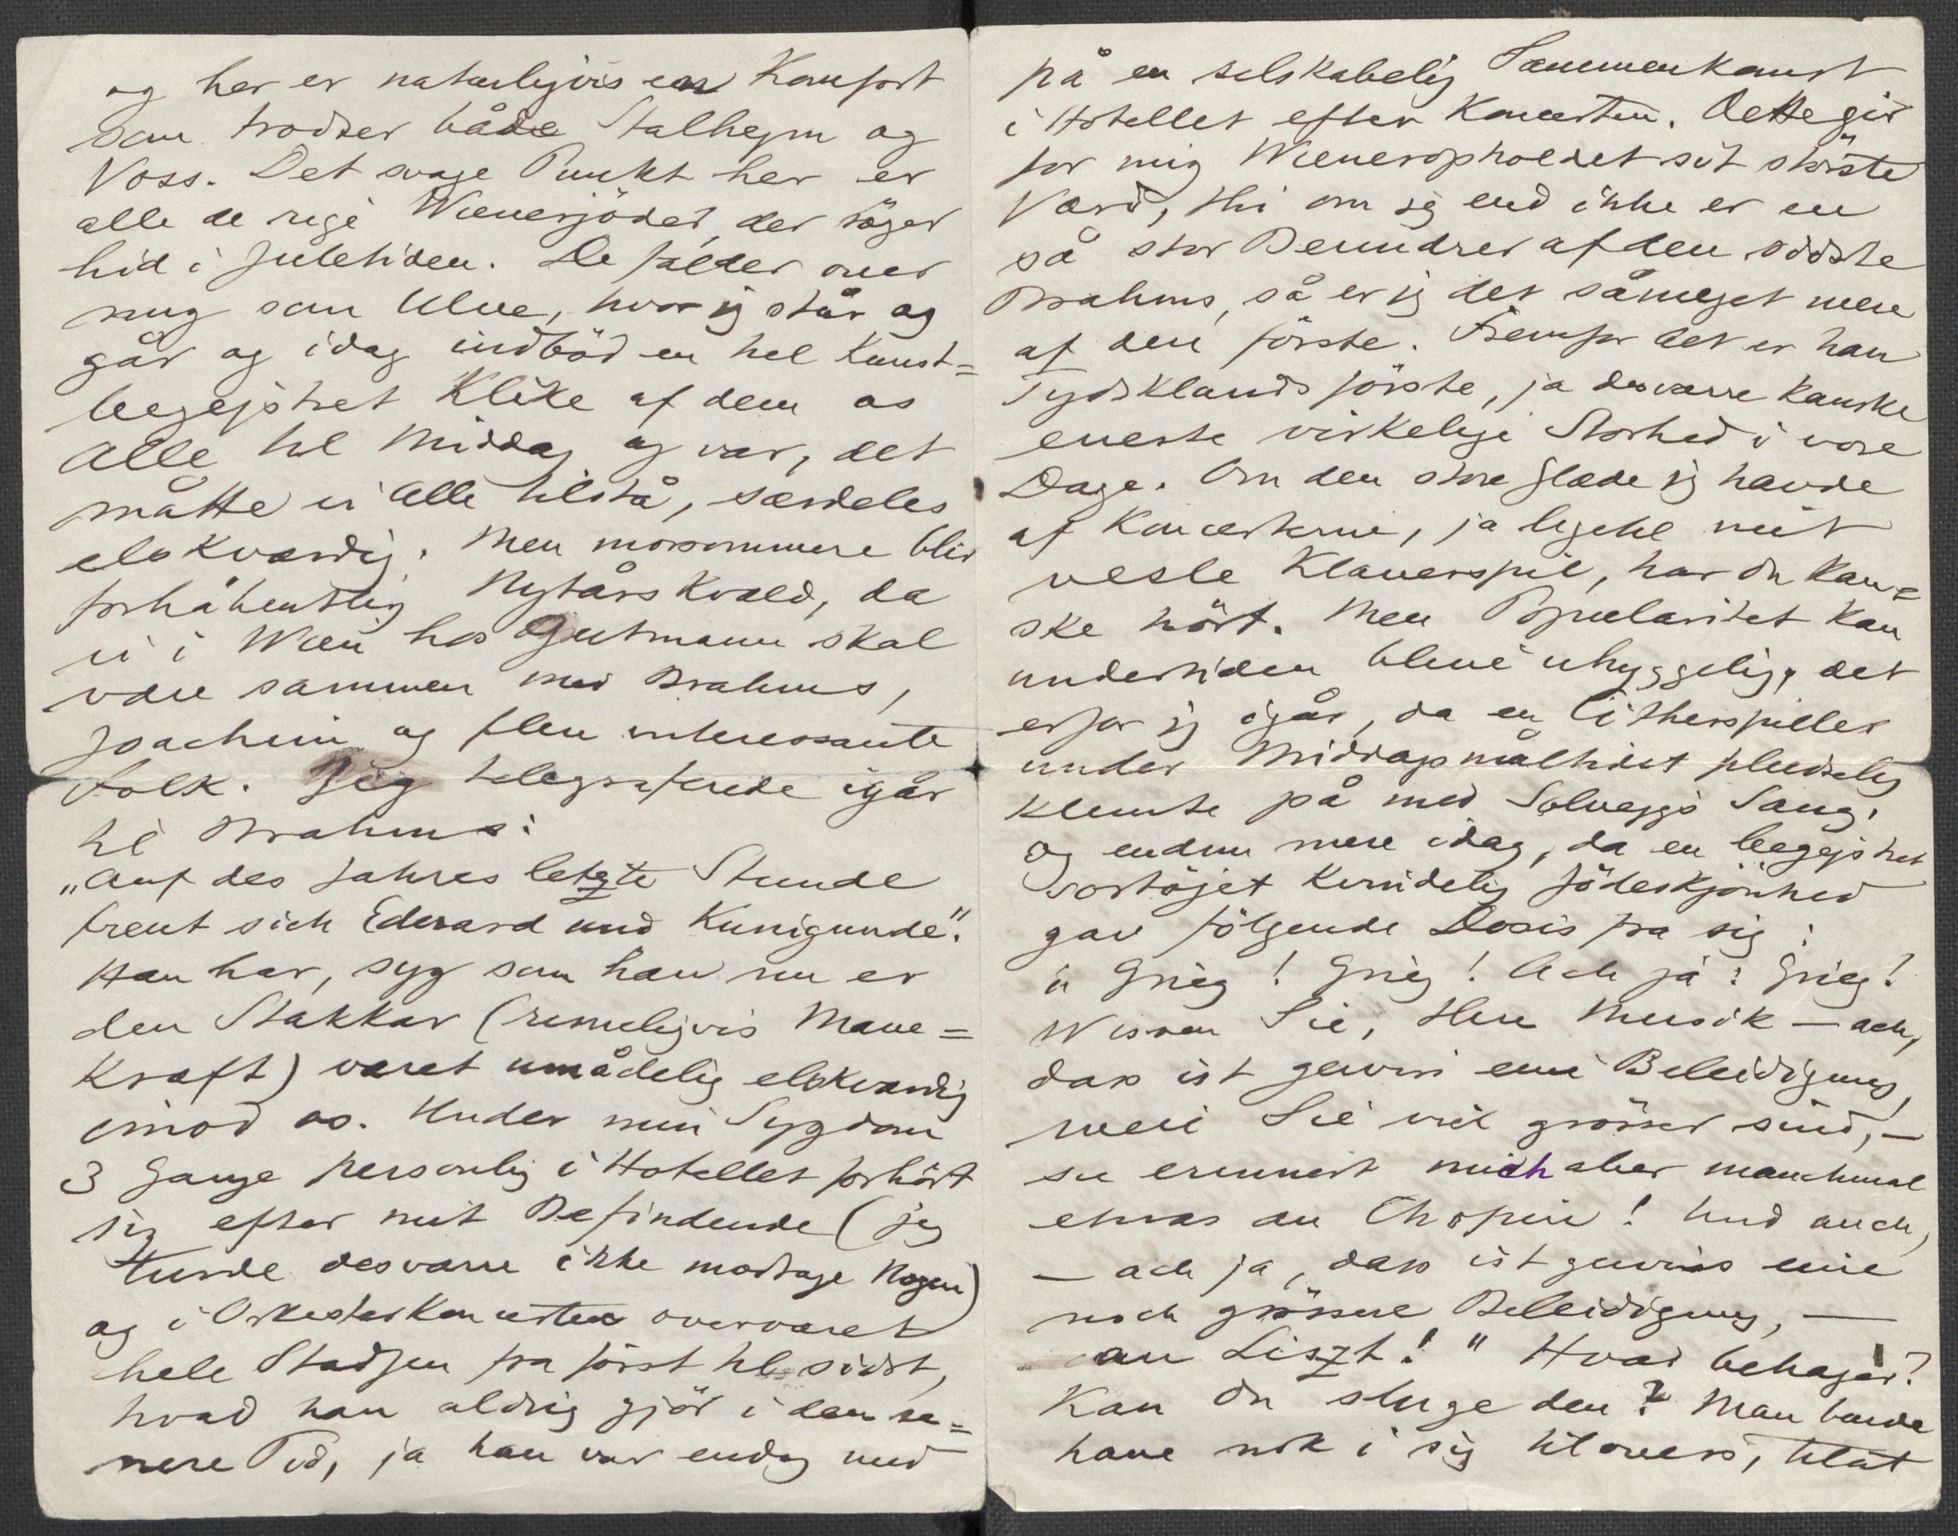 og her er naturligvis en Komfort
som trodser både Stalhejm og
Voss. Det svage Punkt her er
alle de rige Wienerjöder, der söger
hid i Juletiden. De falder over
mig som Ulve, hvor jeg står og
går og idag indböd en hel Kunst=
begejstret Klike af dem os
Alle til Middag og var, det
måtte vi Alle tilstå, særdeles
elskværdig. Men morsommere blir
forhåbentlig Nytårskvæld, da
vi i Wien hos Gutmann skal
være sammen med Brahms,
Joachim og flere interessante
Folk. Jeg telegraferede igår
til Brahms:
„Auf des Jahres letzte Stunde
freut sich Edvard und Kunigunde“.
Han har, syg som han nu er
den Stakkar (rimeligvis Mave=
kræft) været umådelig elskværdig
imod os. Under min Sygdom
3 Gange personlig i Hotellet forhört
sig efter mit Befindende (jeg
turde desværre ikke modtage Nogen)
og i Orkesterkoncerten overværet
hele Stadsen fra först til sidst,
hvad han aldrig gjör i den se=
nere Tid, ja han var endog med
på en selskabelig Sammenkomst
i Hotellet efter Koncerten. Dette gir
for mig Wieneropholdet sit störste
Værd, thi om jeg end ikke er en
så stor Beundrer af den sidste
Brahms, så er jeg det såmeget mere
af den förste. Fremfor det er han
Tydsklands förste, ja desværre kanske
eneste virkelige Storhed i vore
Dage. Om den store Glæde jeg havde
af Koncerterne, ja ligetil mit
vesle Klaverspil, har du kan=
ske hört. Men Popularitet kan
undertiden blive uhyggelig, det
erfor jeg igår, da en Citherspiller
under Middagsmåltidet pludselig
klemte på med Solvejgs Sang,
og endnu mere idag, da en begejstret
sortöjet kvindelig Jödeskjönhed
gav fölgende Dosis fra sig:
„ Grieg! Grieg! Ach ja: Grieg!
Wissen Sie, Ihre Musik — ach,
dass ist gewiss eine Beleidigung,
weil Sie viel grösser sind, —
sie erinnert mich aber manchmal
etwas an Chopin! Und auch,
— ach ja, dass ist gewiss eine
noch grössere Beleidigung, —
an Liszt! “ Hvad behager?
Kan du sluge den? Man burde
have nok i sig tilovers, tilat